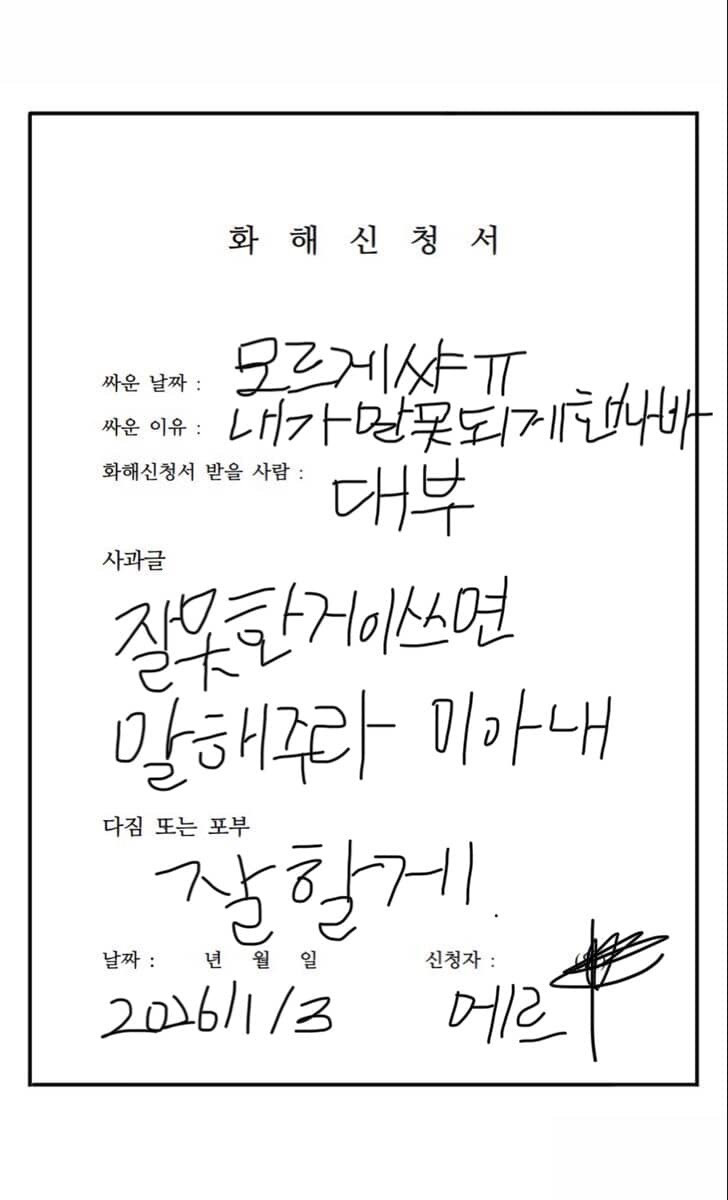 화 해 신 청 서
싸운 날짜 : 모르게샤ㅠ
싸운 이유 : 내가말못되게핸나바
화해신청서 받을 사람 : 대부
사과글
잘못한거이쓰면
말해주라 미아내
다짐 또는 포부
잘할게.
날짜 : 년 월 일 신청자 :
2026/1/3 메르